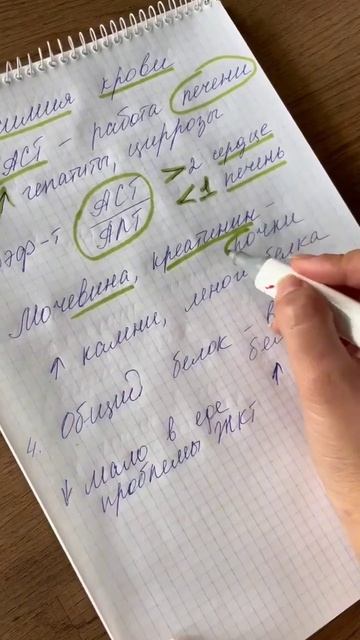 химия крови
АСТ - работа печени
↑ гепатиты, циррозы
АСТ > 2 сердце
АЛТ < 1 печень
Мочевина, креатинин - почки
↑ камни, много белка
4. Общий белок -
↓ мало в еде ↑
проблемы ЖКТ